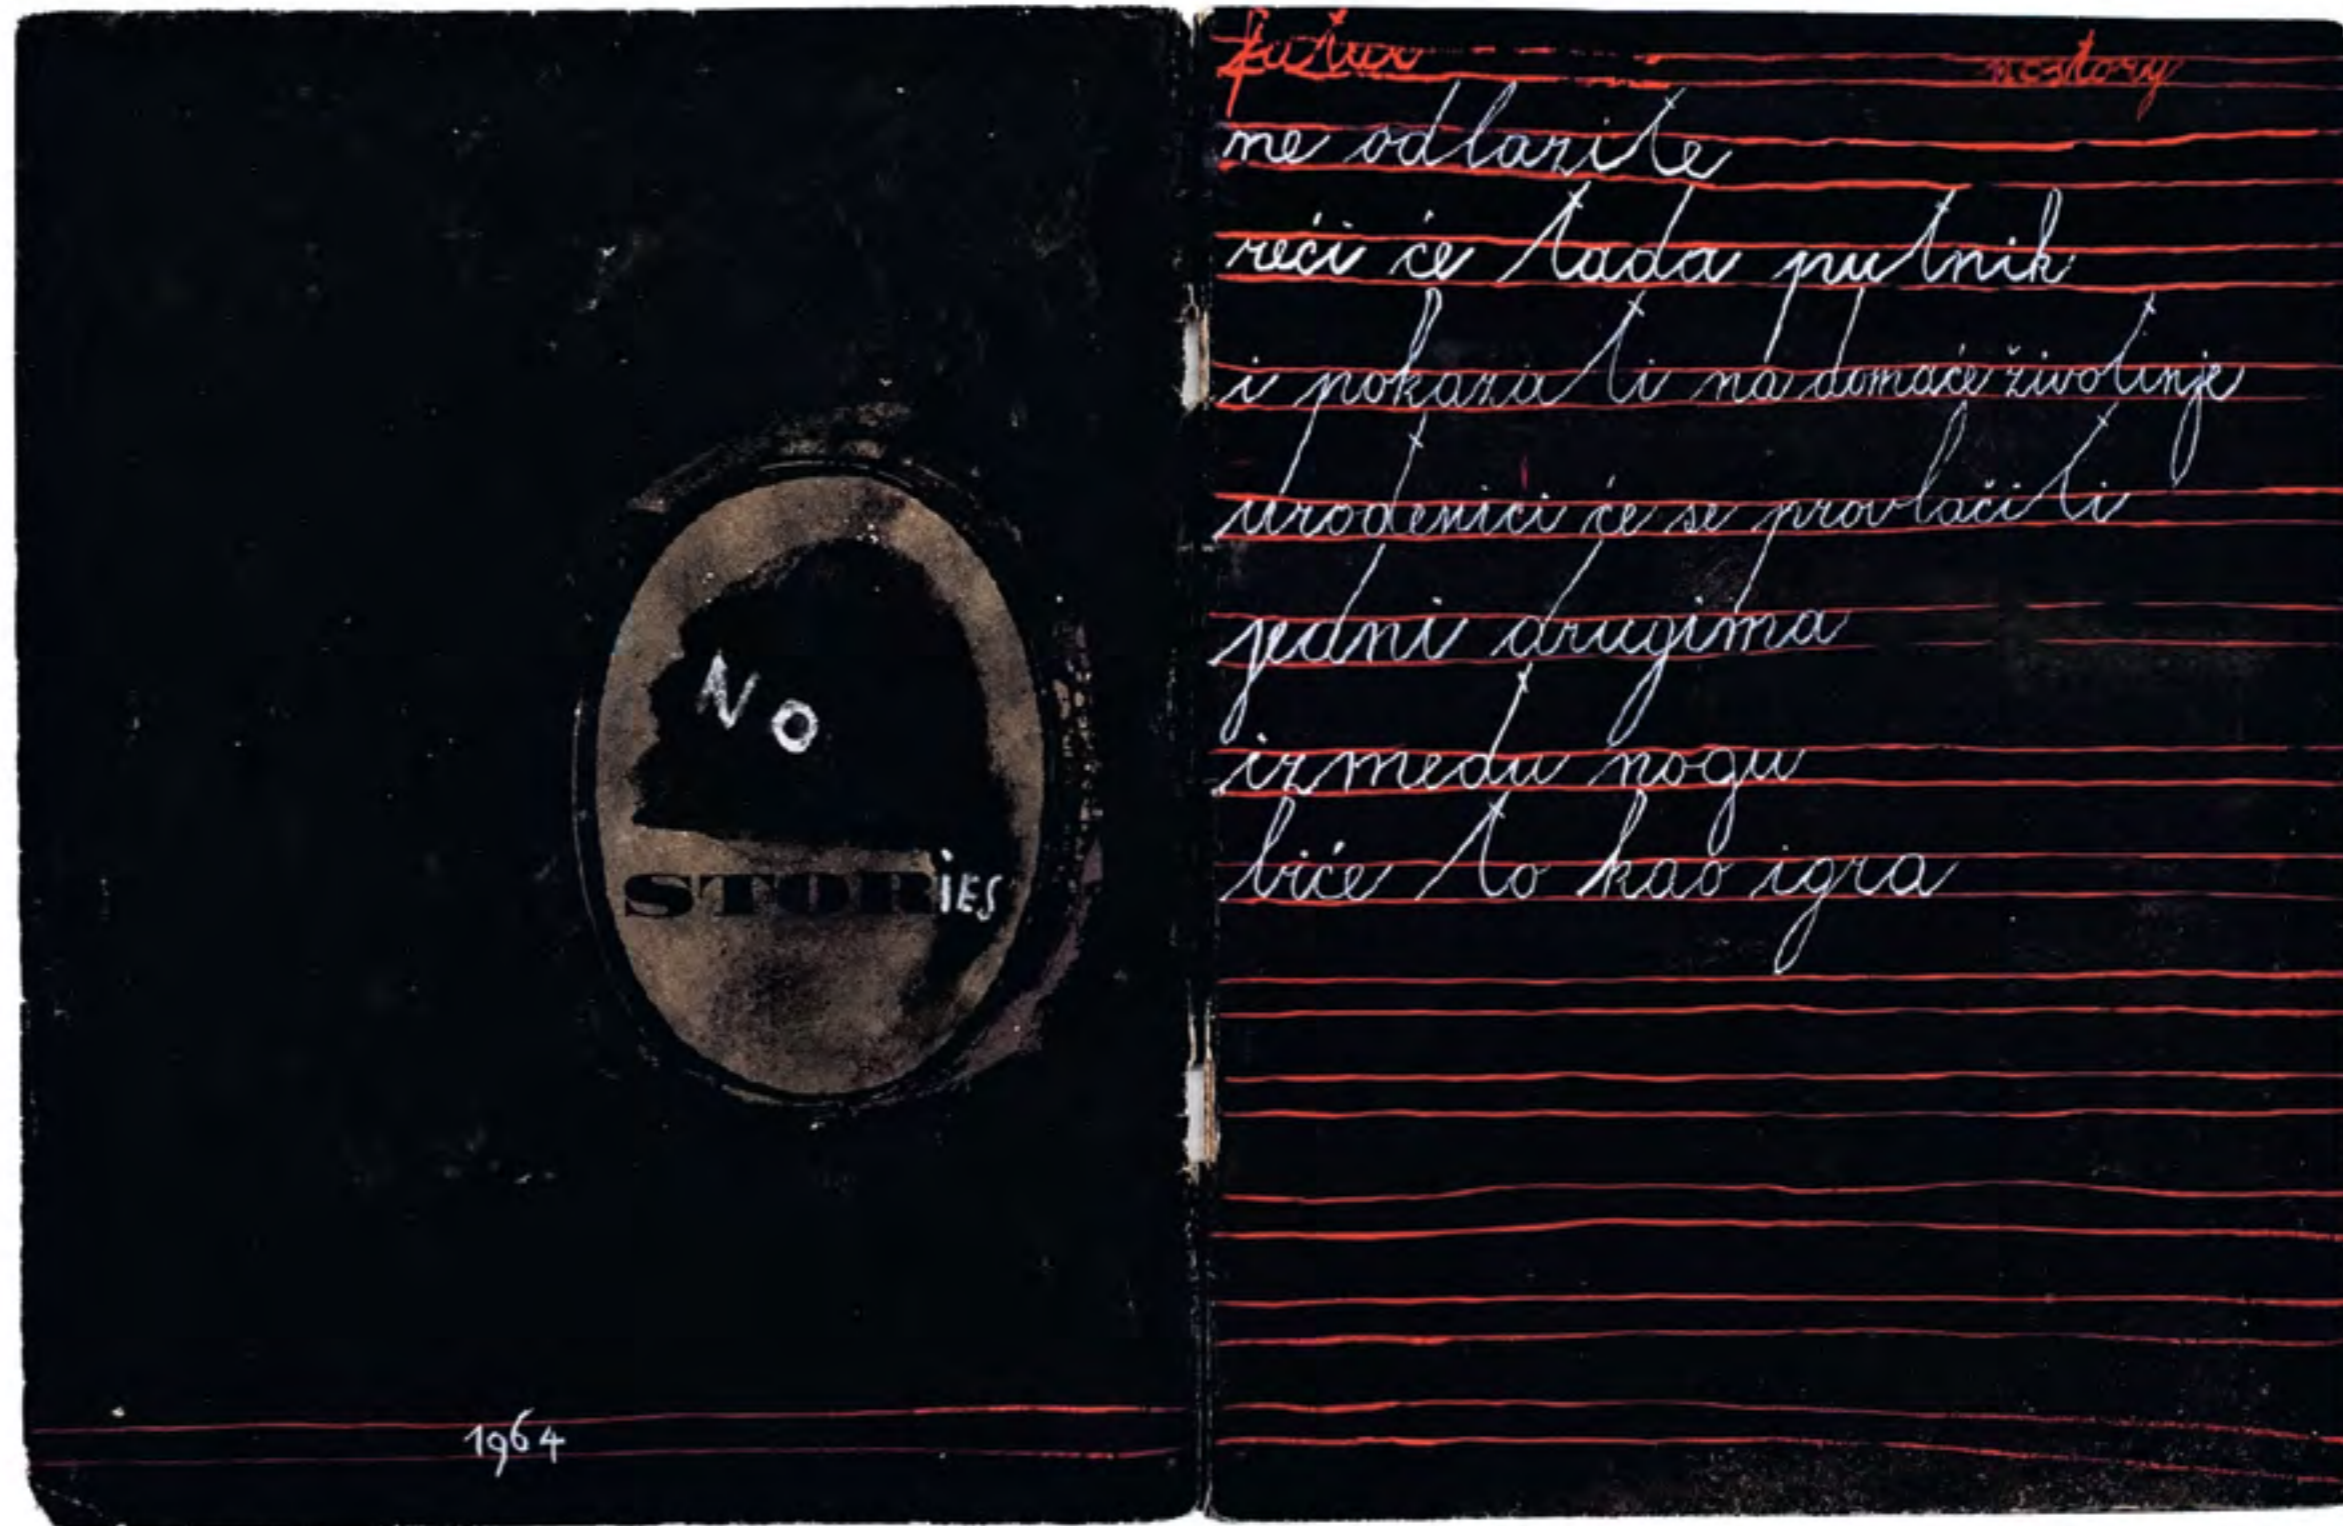 NO
STORiES
1964
futur nostory
ne odlazite
reći će tada putnik
i pokazati na domaće životinje
urođenici će se provlačiti
jedni drugima
između nogu
biće to kao igra